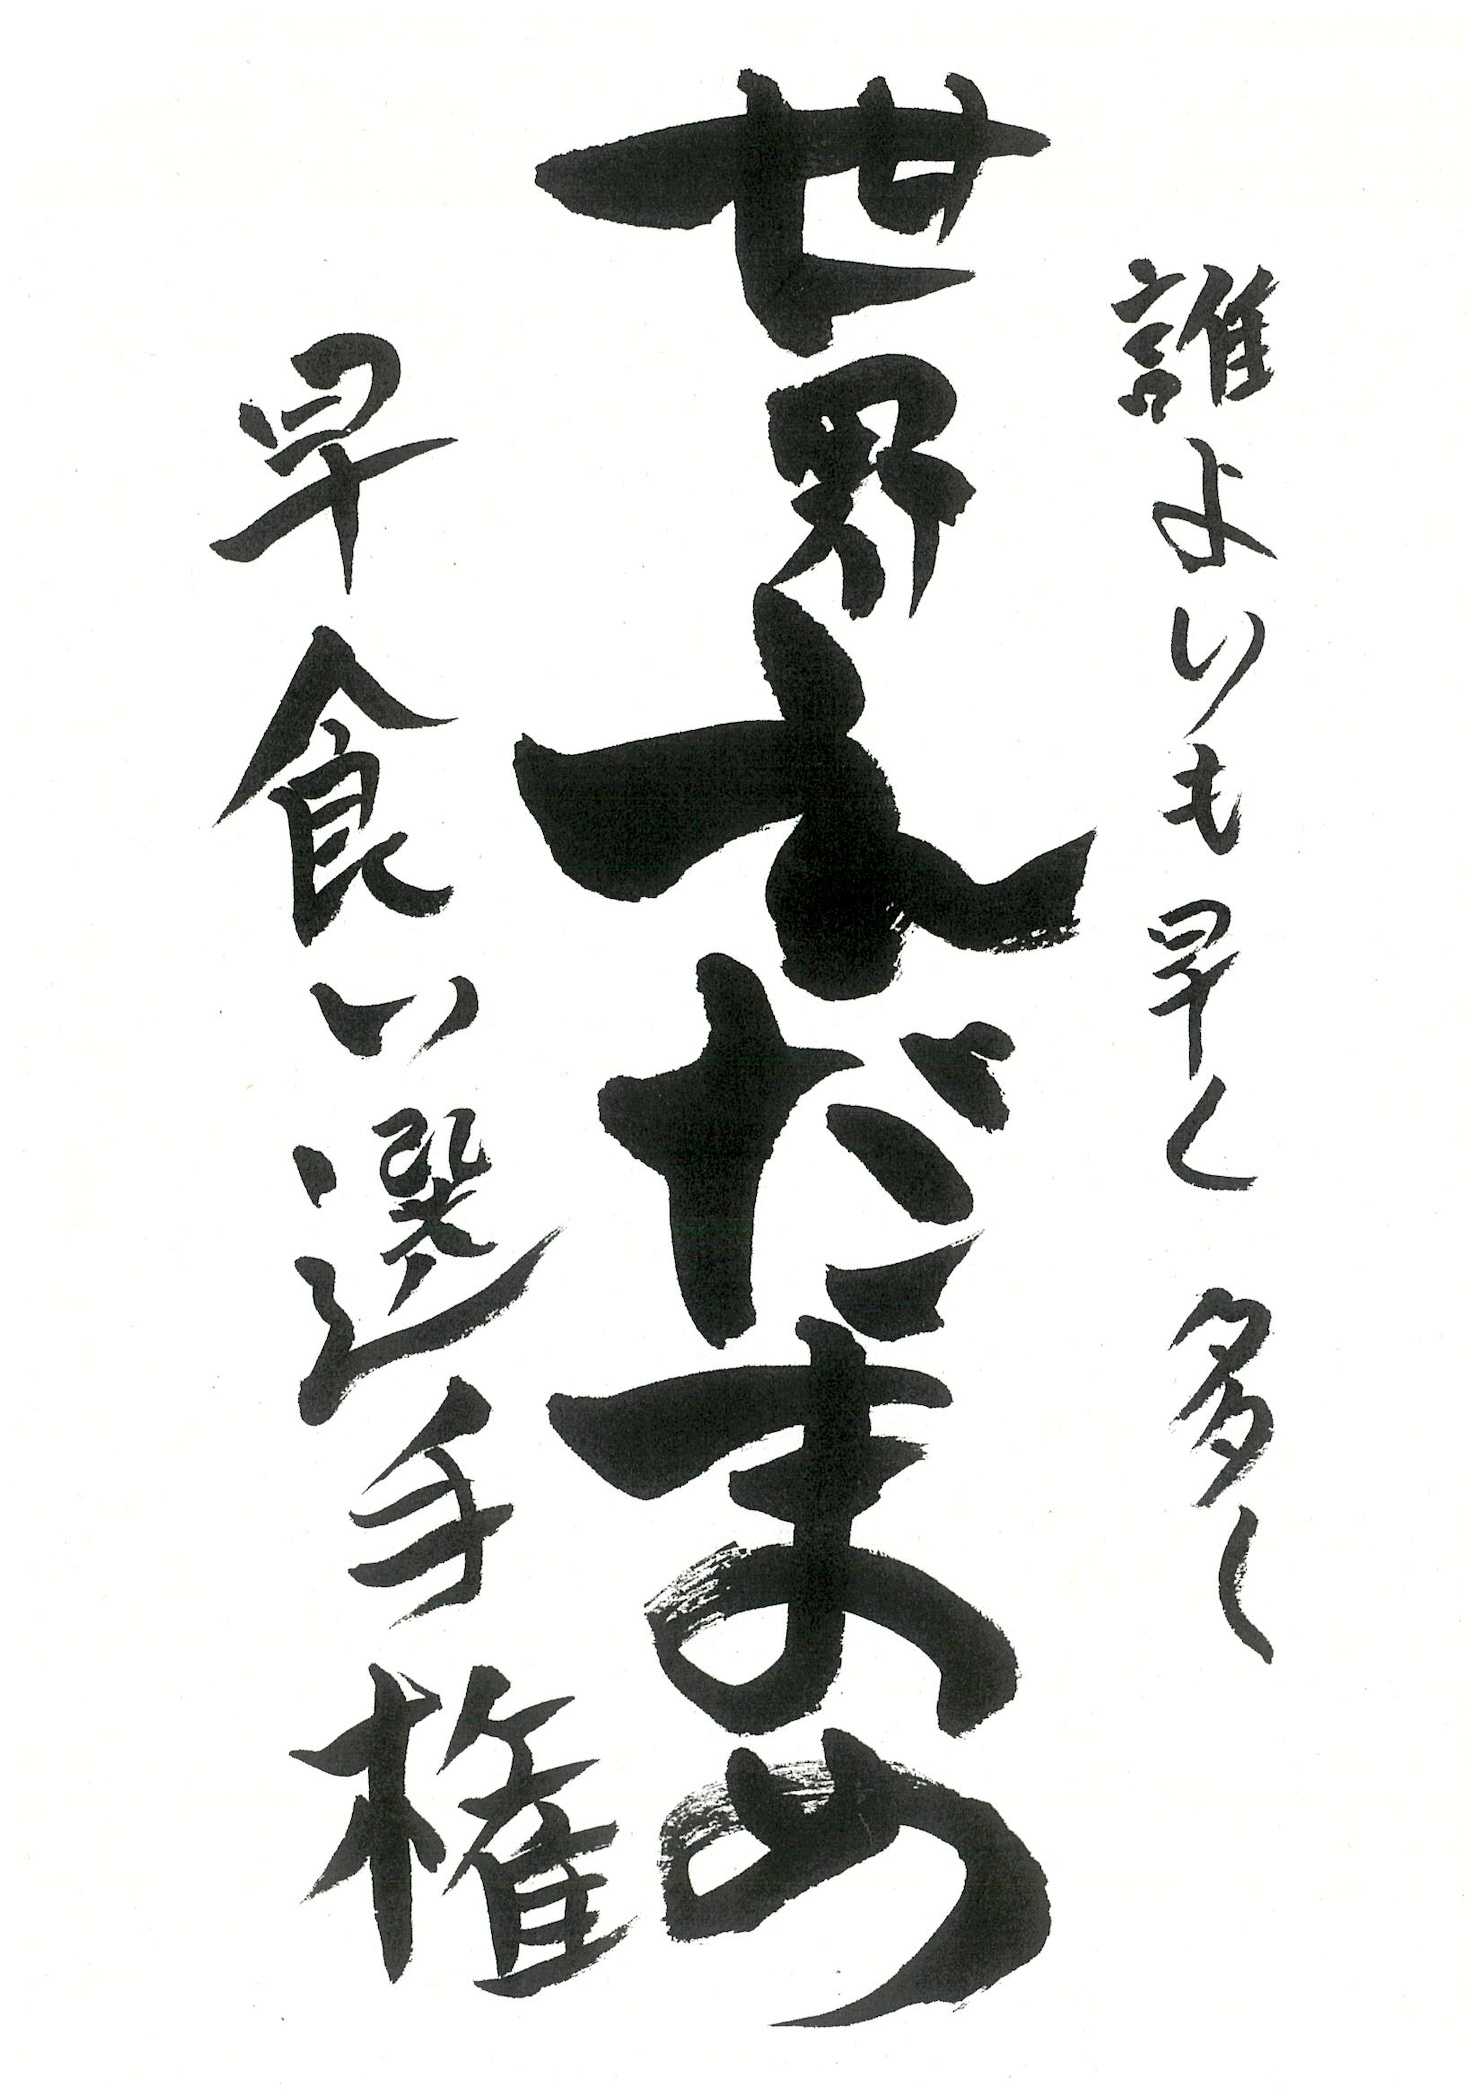 誰よりも早く 多く
世界えだまめ
早食い選手権